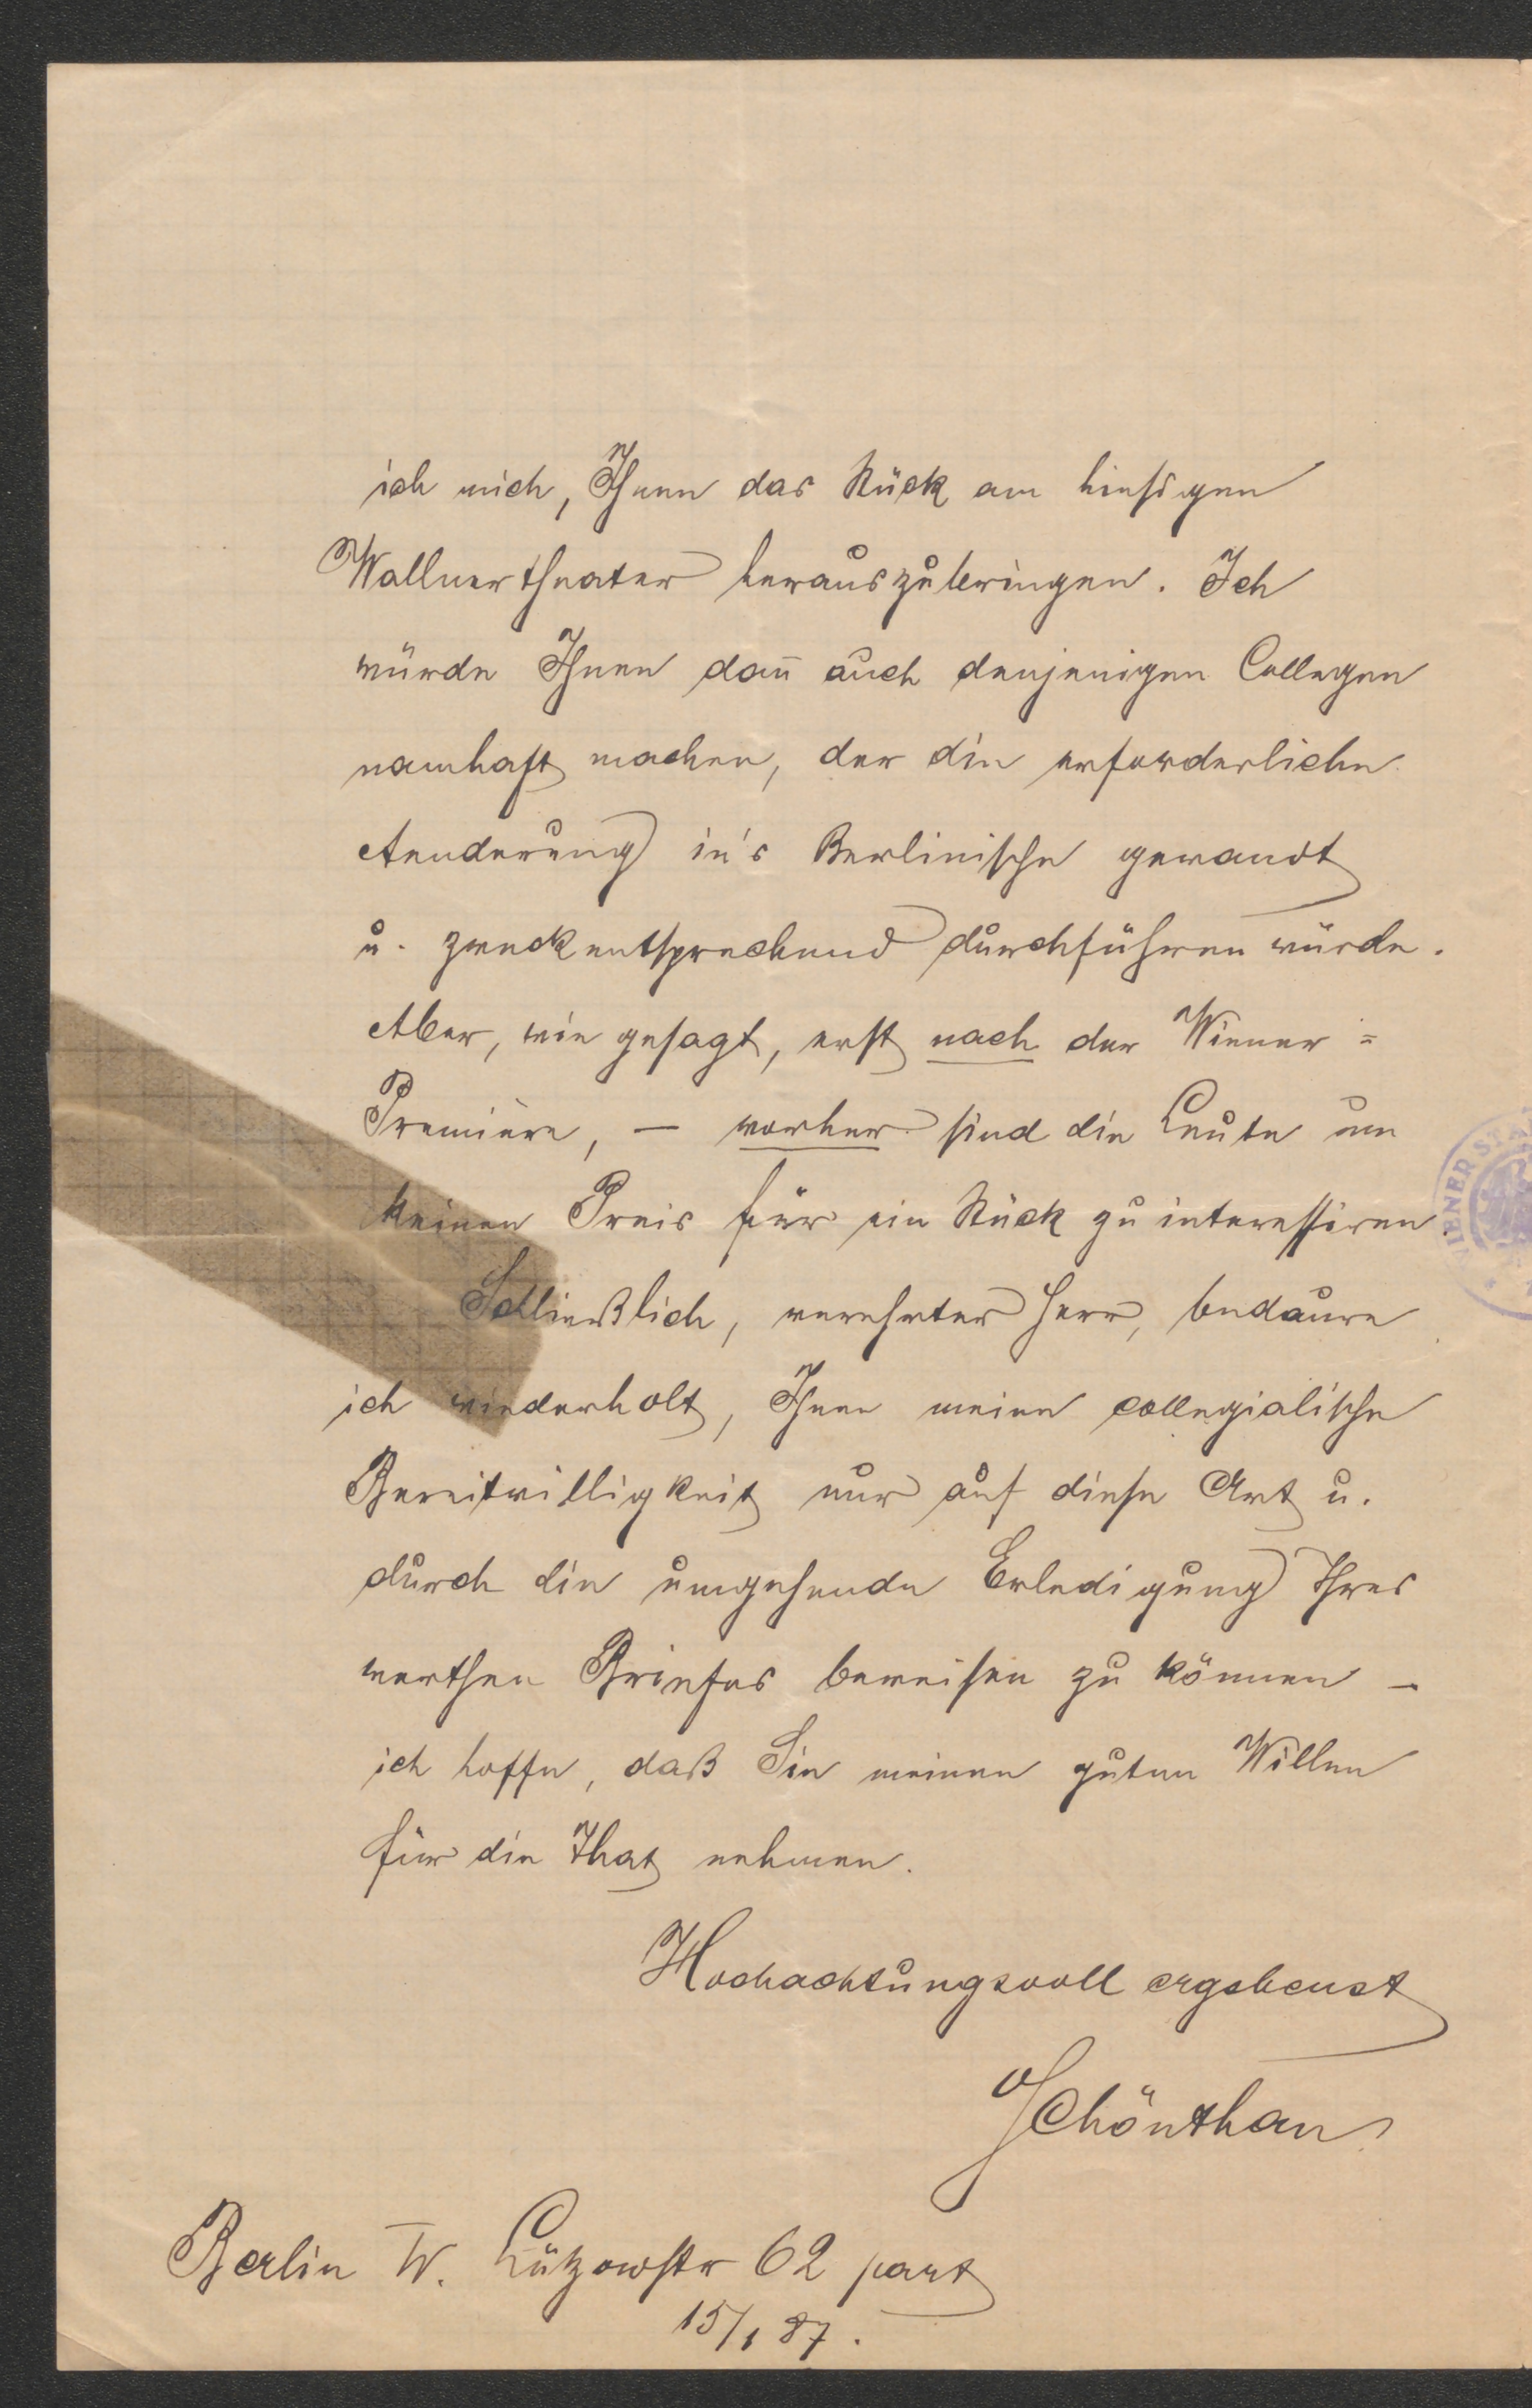 ich mich, Ihnen das Stück am hiesigen
Wallnertheater herauszubringen. Ich
würde Ihnen dañ auch denjenigen Collegen
namhaft machen, der die erforderliche
Aenderung in's Berlinische gewandt
u. zweckentsprechend durchführen würde.
Aber, wie gesagt, erst nach der Wiener=
Première, — vorher sind die Leute um
keinen Preis für ein Stück zu interessiren.
Schließlich, verehrter Herr, bedaure
ich wiederholt, Ihnen meine collegialische
Bereitwilligkeit nur auf diese Art u.
durch die umgehende Erledigung Ihres
werthen Briefes beweisen zu können –
ich hoffe, daß Sie meinen guten Willen
für die That nehmen.
Hochachtungsvoll ergebenst
Schönthan
Berlin W. Lützowstr 62 part
15/1 87.
WIENER